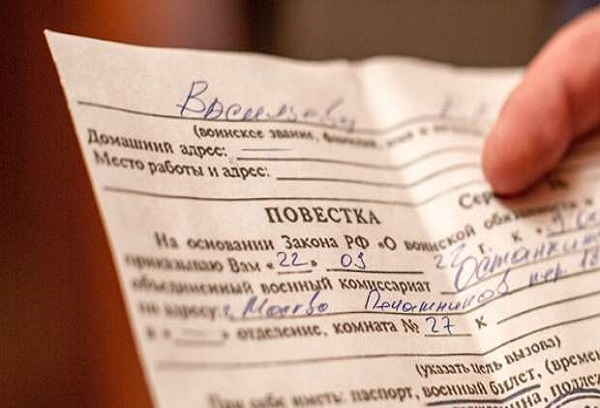 Васильеву
(воинское звание,
Домашний адрес:
Место работы и адрес:
Сер №
ПОВЕСТКА
На основании Закона РФ «О воинской обязанности
приказываю Вам «22» 09 22 г. к «9
объединенный военный комиссариат Останкинс
по адресу: г. Москва Печатников пер. 18
в « » отделение, комната № 27 к
(указать цель вызова)
При себе иметь: паспорт, военный билет, (времен